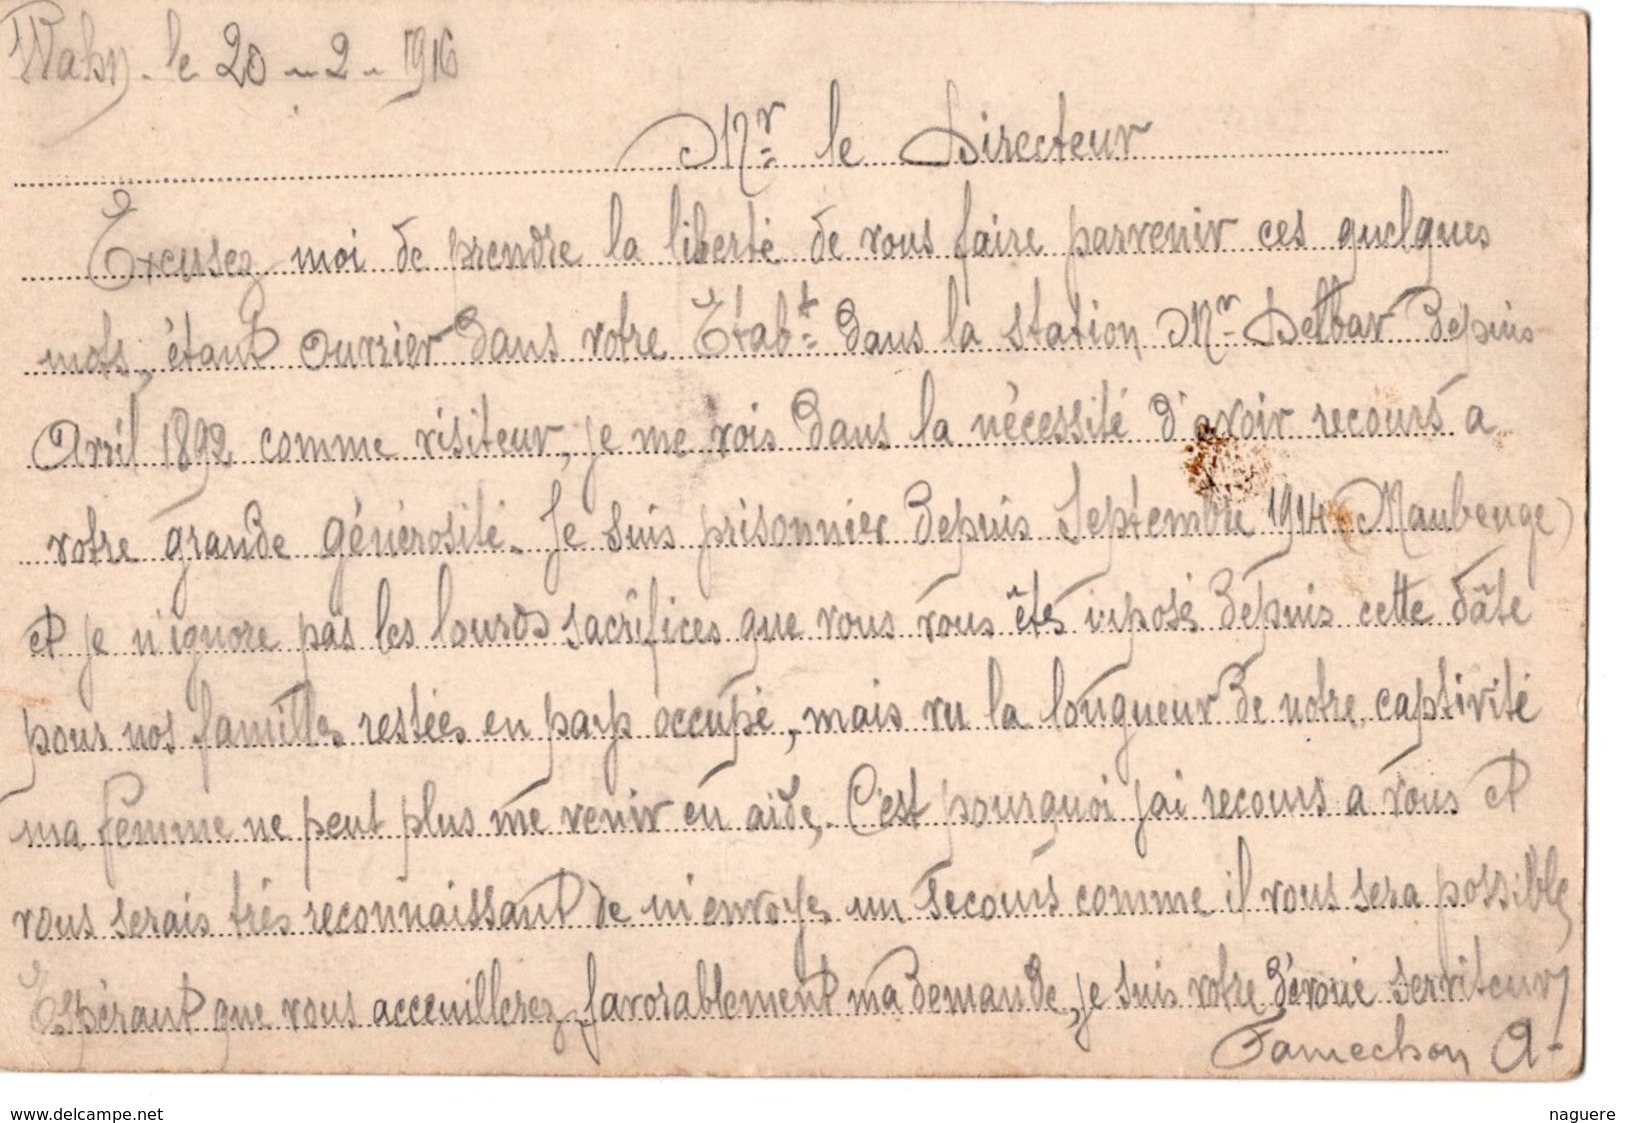 Wahn. le 20-2-1916
Mr. le Directeur
Excusez moi de prendre la liberté de vous faire parvenir ces quelques
mots, étant ouvrier dans votre Etabt. dans la station, Mr. Delbar depuis
Avril 1892 comme visiteur, je me vois dans la nécessité d'avoir recours a
votre grande générosité. Je suis prisonnier depuis Septembre 1914 (Maubeuge)
et je n'ignore pas les lourds sacrifices que vous vous êtes imposé depuis cette dâte
pour nos familles restées en pays occupé, mais vu la longueur de notre captivité
ma femme ne peut plus me venir en aide. C'est pourquoi j'ai recours a vous et
vous serais très reconnaissant de m'envoye un secours comme il vous sera possible,
Espérant que vous acceuillerez favorablement ma demande, je suis votre dévoué serviteur
Famechon A-
www.delcampe.net
naguere